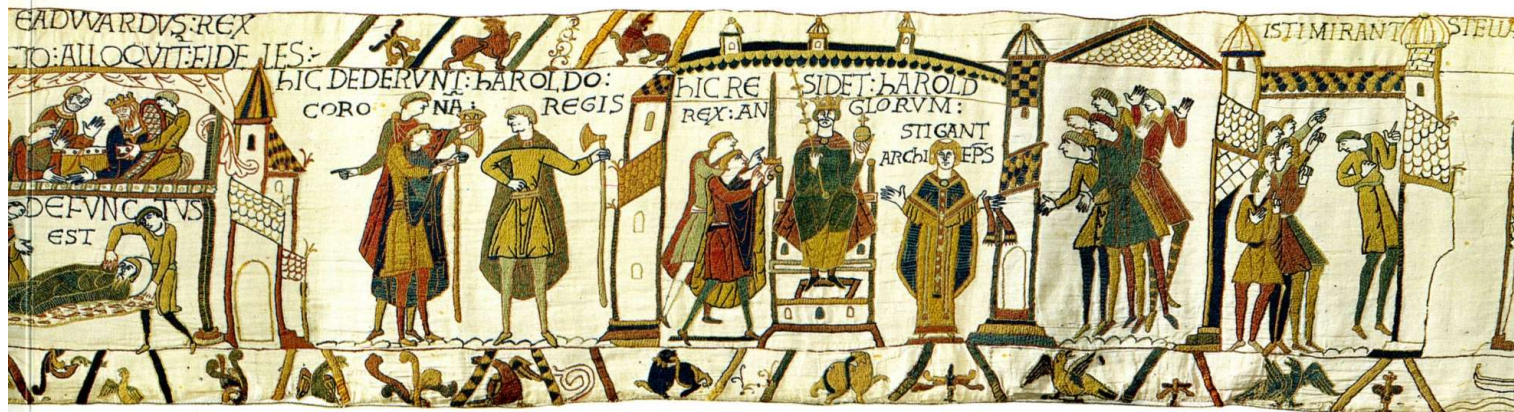 EADVVARDVS:REX
CTO:ALLOQVIT:FIDELES:
DEFVNCTVS
EST
hIC DEDERVNT:hAROLDO:
CORONA: REGIS
hIC RESIDET:hAROLD
REX:ANGLORVM:
STIGANT
ARChIEPS
ISTIMIRANT STELLA